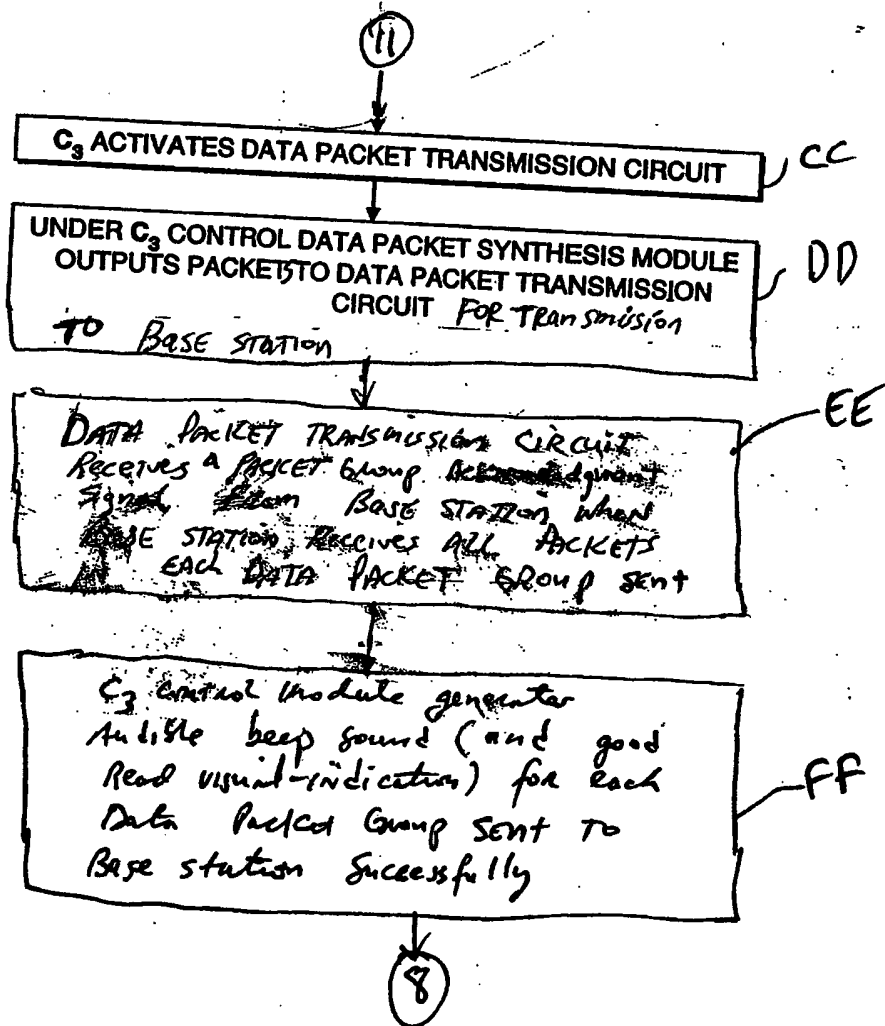 11
C₃ ACTIVATES DATA PACKET TRANSMISSION CIRCUIT
CC
UNDER C₃ CONTROL DATA PACKET SYNTHESIS MODULE
OUTPUTS PACKETS TO DATA PACKET TRANSMISSION
CIRCUIT FOR Transmission
TO Base Station
DD
DATA PACKET TRANSMISSION CIRCUIT
Receives a PACKET Group Acknowledgment
Signal From BASE STATION when
BASE STATION Receives ALL PACKETS
EACH DATA PACKET GROUP Sent
EE
C₃ control module generates
Audible beep sound (and good
Read visual-indication) for each
Data Packet Group Sent To
Base station Successfully
FF
8